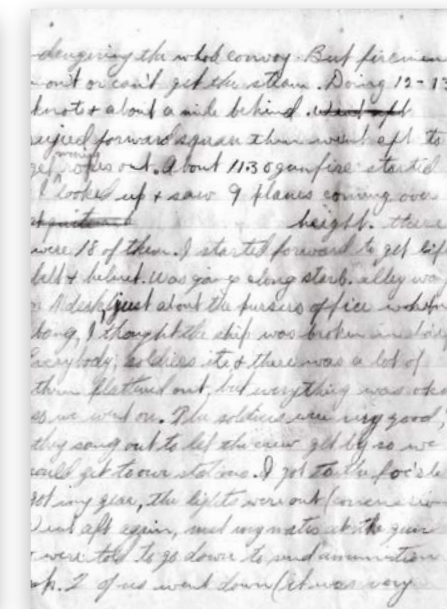 -dangering the whole convoy. But firemen
out or can't get the steam. Doing 12-13
knots & about a mile behind.
rigged forward span then went aft to
get mooring ropes out. About 11.30 gunfire started
I looked up & saw 9 planes coming over
height. there
were 18 of them. I started forward to get life
belt & helmet. Was going along starb. alley way
on A deck, just about the pursers office when
bang, I thought the ship was broken in half
Everybody, soldiers etc & there was a lot of
them flattened out, but everything was oke
so we went on. The soldiers were very good,
they sang out to let the crew get by so we
could get to our stations. I got to the foc'sle
got my gear, the lights were out
Went aft again, met my mates at the gun
& were told to go down to send ammunition
up. 2 of us went down (it was very